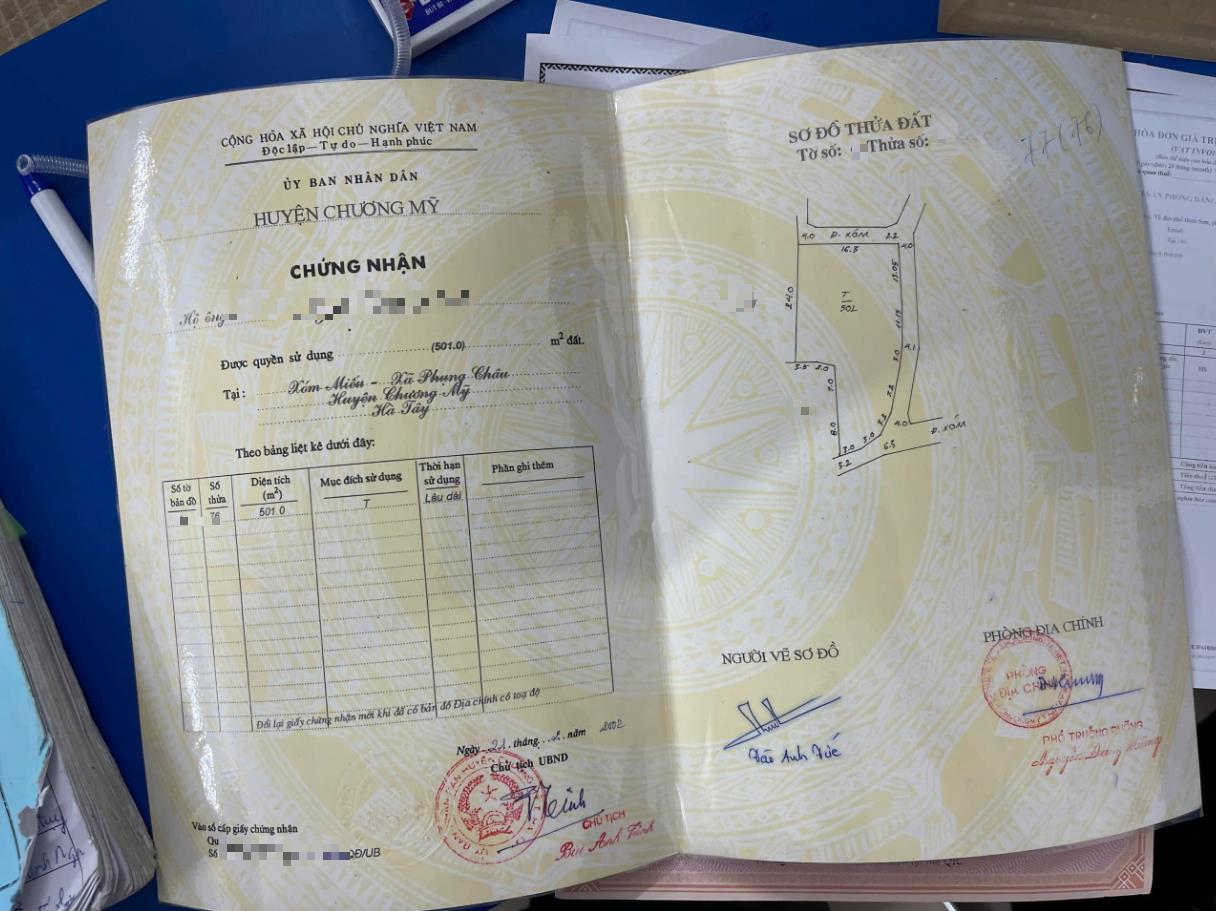 CỘNG HÒA XÃ HỘI CHỦ NGHĨA VIỆT NAM
Độc lập — Tự do — Hạnh phúc
ỦY BAN NHÂN DÂN
HUYỆN CHƯƠNG MỸ
CHỨNG NHẬN
Hộ ông
Được quyền sử dụng (501.0) m² đất.
Tại: Xóm Miếu - Xã Phụng Châu
Huyện Chương Mỹ
Hà Tây
Theo bảng liệt kê dưới đây:
Số tờ bản đồ Số thửa Diện tích (m²) Mục đích sử dụng Thời hạn sử dụng Phần ghi thêm
76 501.0 T Lâu dài
Đổi lại giấy chứng nhận mới khi đã có bản đồ Địa chính có toạ độ
Ngày 21 tháng năm 2002
Chủ tịch UBND
CHỦ TỊCH
Bùi Anh
Vào sổ cấp giấy chứng nhận
Qu
Số QĐ/UB
SƠ ĐỒ THỬA ĐẤT
Tờ số: Thửa số:
77 (76)
4.0 Đ. XÓM 2.2
16.3 4.0
24.0
T
501
3.0 4.1
5.5 2.0
7.0 7.2
8.0 4.0 Đ. XÓM
3.0 5.0
3.2 6.5
NGƯỜI VẼ SƠ ĐỒ
PHÒNG ĐỊA CHÍNH
PHÒNG
ĐỊA CHÍNH
PHÓ TRƯỞNG PHÒNG
HÓA ĐƠN GIÁ TR
(VAT INVOI
ĐVT